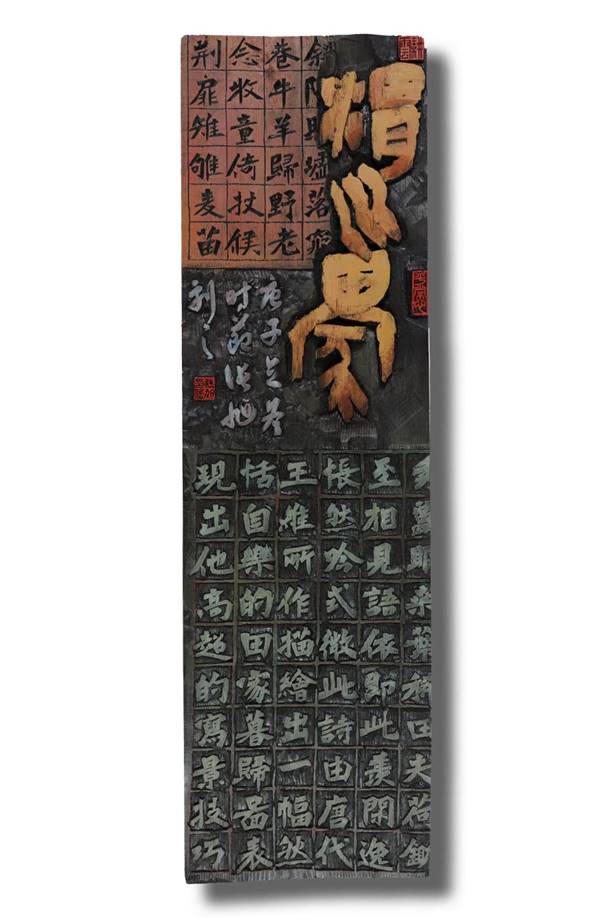 斜陽照墟落窮
巷牛羊歸野老
念牧童倚杖候
荊扉雉雊麦苗
庚子
秀蠶眠桑葉稀田夫荷鋤
至相見語依即此羨閑逸
悵然吟式微此詩由唐代
王維所作描繪出一幅然
恬自樂的田家暮歸圖表
現出他高超的寫景技巧